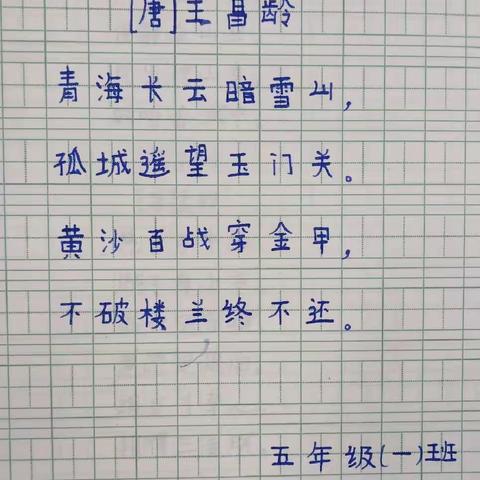 [唐]王昌龄
青海长云暗雪山，
孤城遥望玉门关。
黄沙百战穿金甲，
不破楼兰终不还。
五年级(一)班